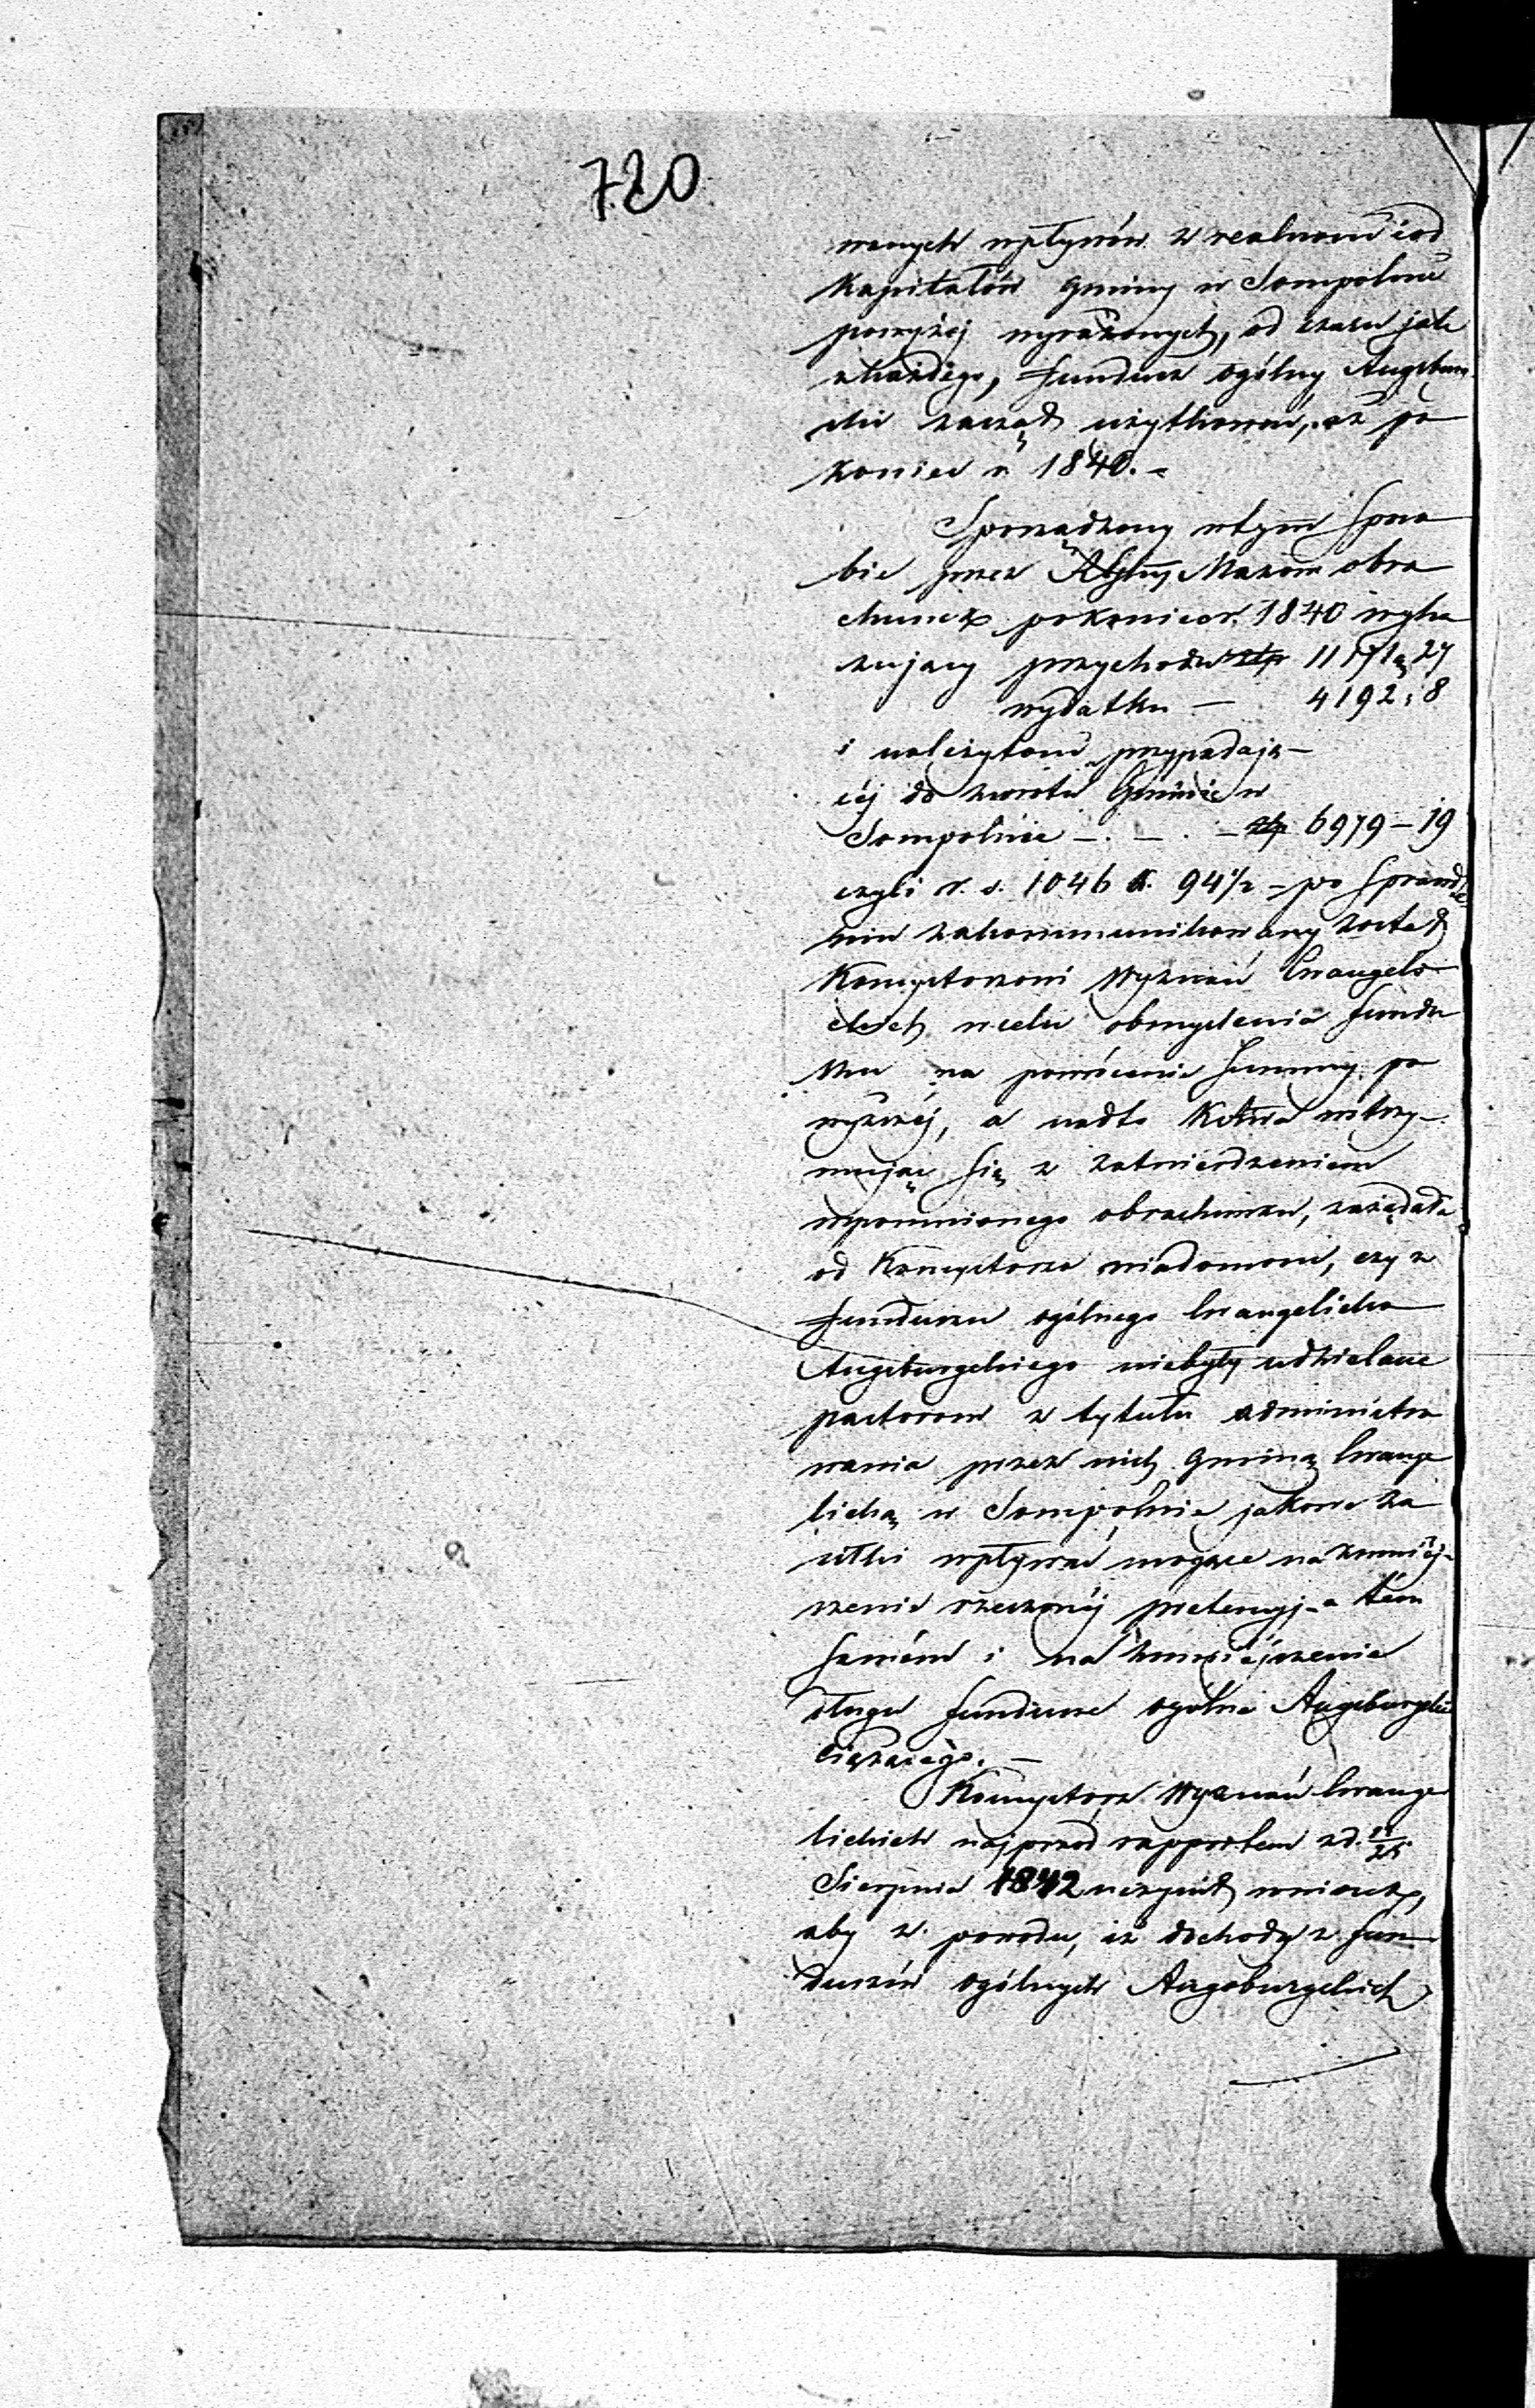 720
wanych wpływów z realności i od
Kapitałów Gminy w Sompolnie
powyżej wyrażonych, od czasu jak
z każdego, Fundusz ogólny Augsburg
ski zaczął użytkować, aż po
koniec r. 1840. –
Sporządzony w tym spo
bie przez Mazow obra
chunek po koniec r. 1840 wyka
zujący przychodu złp 11171, 27
wydatku — 4192, 8
i należytość przypadają–
céj do zwrotu Gminie w
Sompolnie – . – . – złp 6979 – 19
czyli r. s. 1046 k. 94½ – po sprawdze
niu zakommunikowany został
Konsystorzowi Wyznań Ewangeli
ckich w celu obmyślenia fundu
szu na powrócenie summy po
wyższéj, a nadto wstrzy–
mując się z zatwierdzeniem
wpomnionego obrachunku, zażądała
od Konsystorza wiadomości, czy z
Funduszu ogólnego Ewangelicko
Augsburgskiego niebyły udzielane
pastorom z tytułu administro
wania przez nich Gminą Ewange
licką w Sompolnie jakowe za
siłki wpływać mogące na zmniej–
szenie rzeczonéj pretensyj – a tém
samém i na zmniéjszenie
długu fundusze ogólne Augsburgskie
ciążącego. —
Konsystorz Wyznań Ewange
lickich najprzód rapportem z d.
Sierpnia 1842 uczynił wniosek,
aby z powodu, iż dochody z fun
duszów ogólnych Augsburgskich